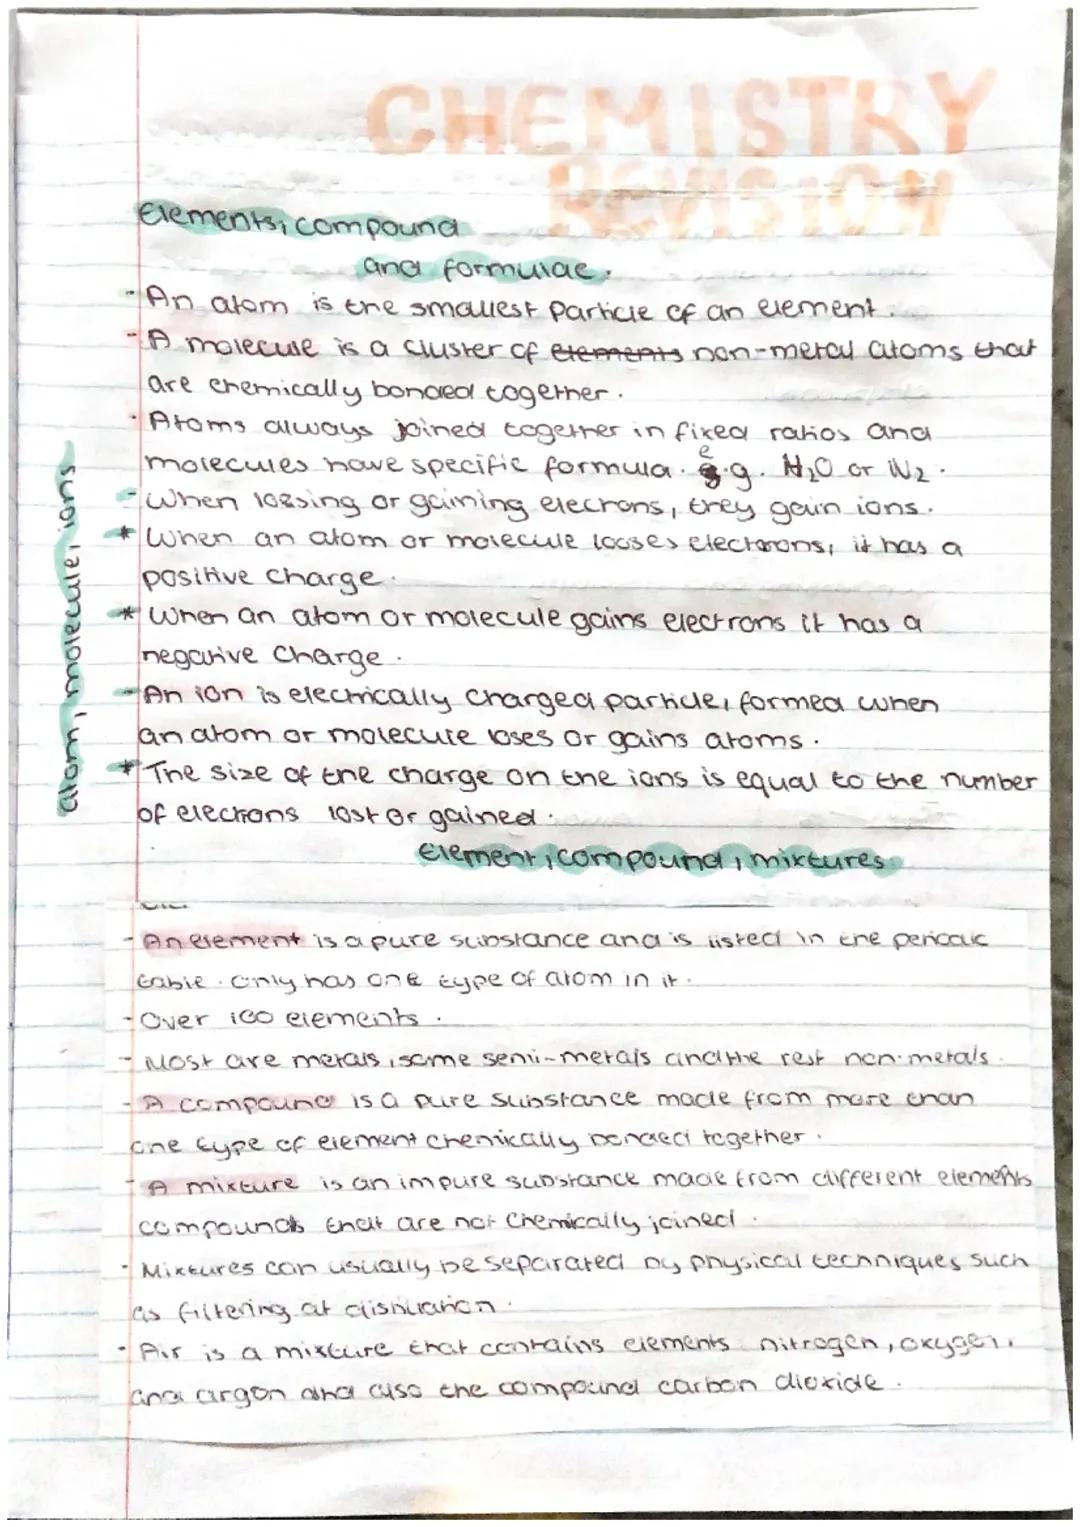 CHEMISTRY
REVISION
Elements, compound
and formulae.
- An atom is the smallest particle of an element.
- A molecule is a cluster of elements non-metal atoms that
are chemically bonded together.
- Atoms always joined together in fixed ratios and
molecules have specific formula. e.g. H₂O or N₂.
- When loosing or gaining elecrons, they gain ions.
* When an atom or molecule looses electorons, it has a
positive charge.
* When an atom or molecule gains electrons it has a
negative charge.
- An ion is electrically charged particle, formed when
an atom or molecule loses or gains atoms.
* The size of the charge on the ions is equal to the number
of electrons lost or gained.
atom, molecule, ions
Element, compound, mixtures
- An element is a pure substance and is listed in the periodic
table. Only has one type of atom in it.
- Over 100 elements.
- Most are metals, some semi-metals and the rest non-metals.
- A compound is a pure substance made from more than
one type of element chemically bonded together.
- A mixture is an impure substance made from different elements
compounds that are not chemically joined.
- Mixtures can usually be separated by physical techniques such
as filtering at distillation.
- Air is a mixture that contains elements nitrogen, oxygen,
and argon and also the compound carbon dioxide.